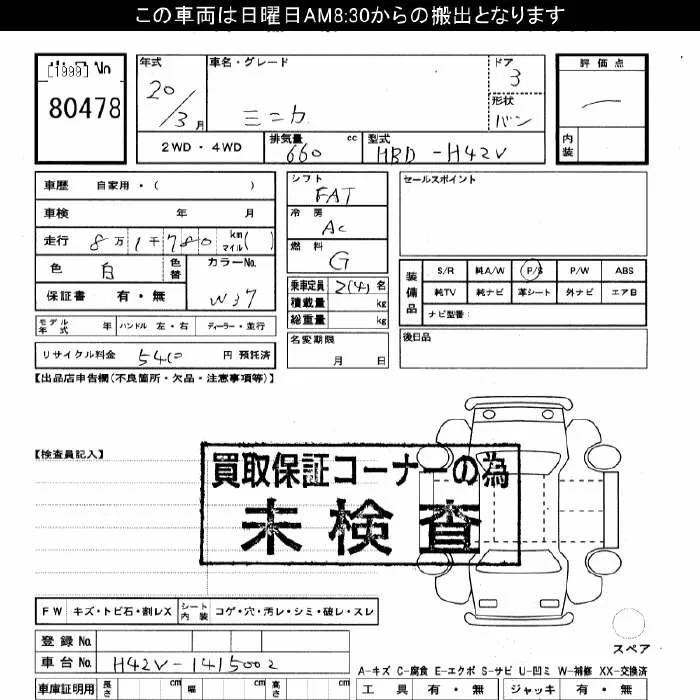 この車両は日曜日AM8:30からの搬出となります
[1999] No
80478
年式
20/3月
車名・グレード
ミニカ
ドア
3
形状
バン
評価点
内装
2WD・4WD
排気量
660 cc
型式
HBD-H42V
車歴 自家用・( )
車検 年 月
走行 8万1千780 km マイル( )
色 白 色替
カラーNo.
W37
保証書 有・無
モデル年式 年 ハンドル 左・右 ディーラー・並行
リサイクル料金 5410 円 預託済
シフト
FAT
冷房
AC
燃料
G
乗車定員 2(4) 名
積載量 kg
総重量 kg
名変期限
月 日
セールスポイント
装備品
S/R 純A/W P/S P/W ABS
純TV 純ナビ 革シート 外ナビ エアB
ナビ型番:
後日品
【出品店申告欄(不良箇所・欠品・注意事項等)】
【検査員記入】
買取保証コーナーの為
未検査
FW キズ・トビ石・割レX シート内装 コゲ・穴・汚レ・シミ・破レ・スレ
登録No.
車台No. H42V-1415002
車庫証明用 長さ cm 幅 cm 高さ cm
スペア
A-キズ C-腐食 E-エクボ S-サビ U-凹ミ W-補修 XX-交換済
工具 有・無 ジャッキ 有・無